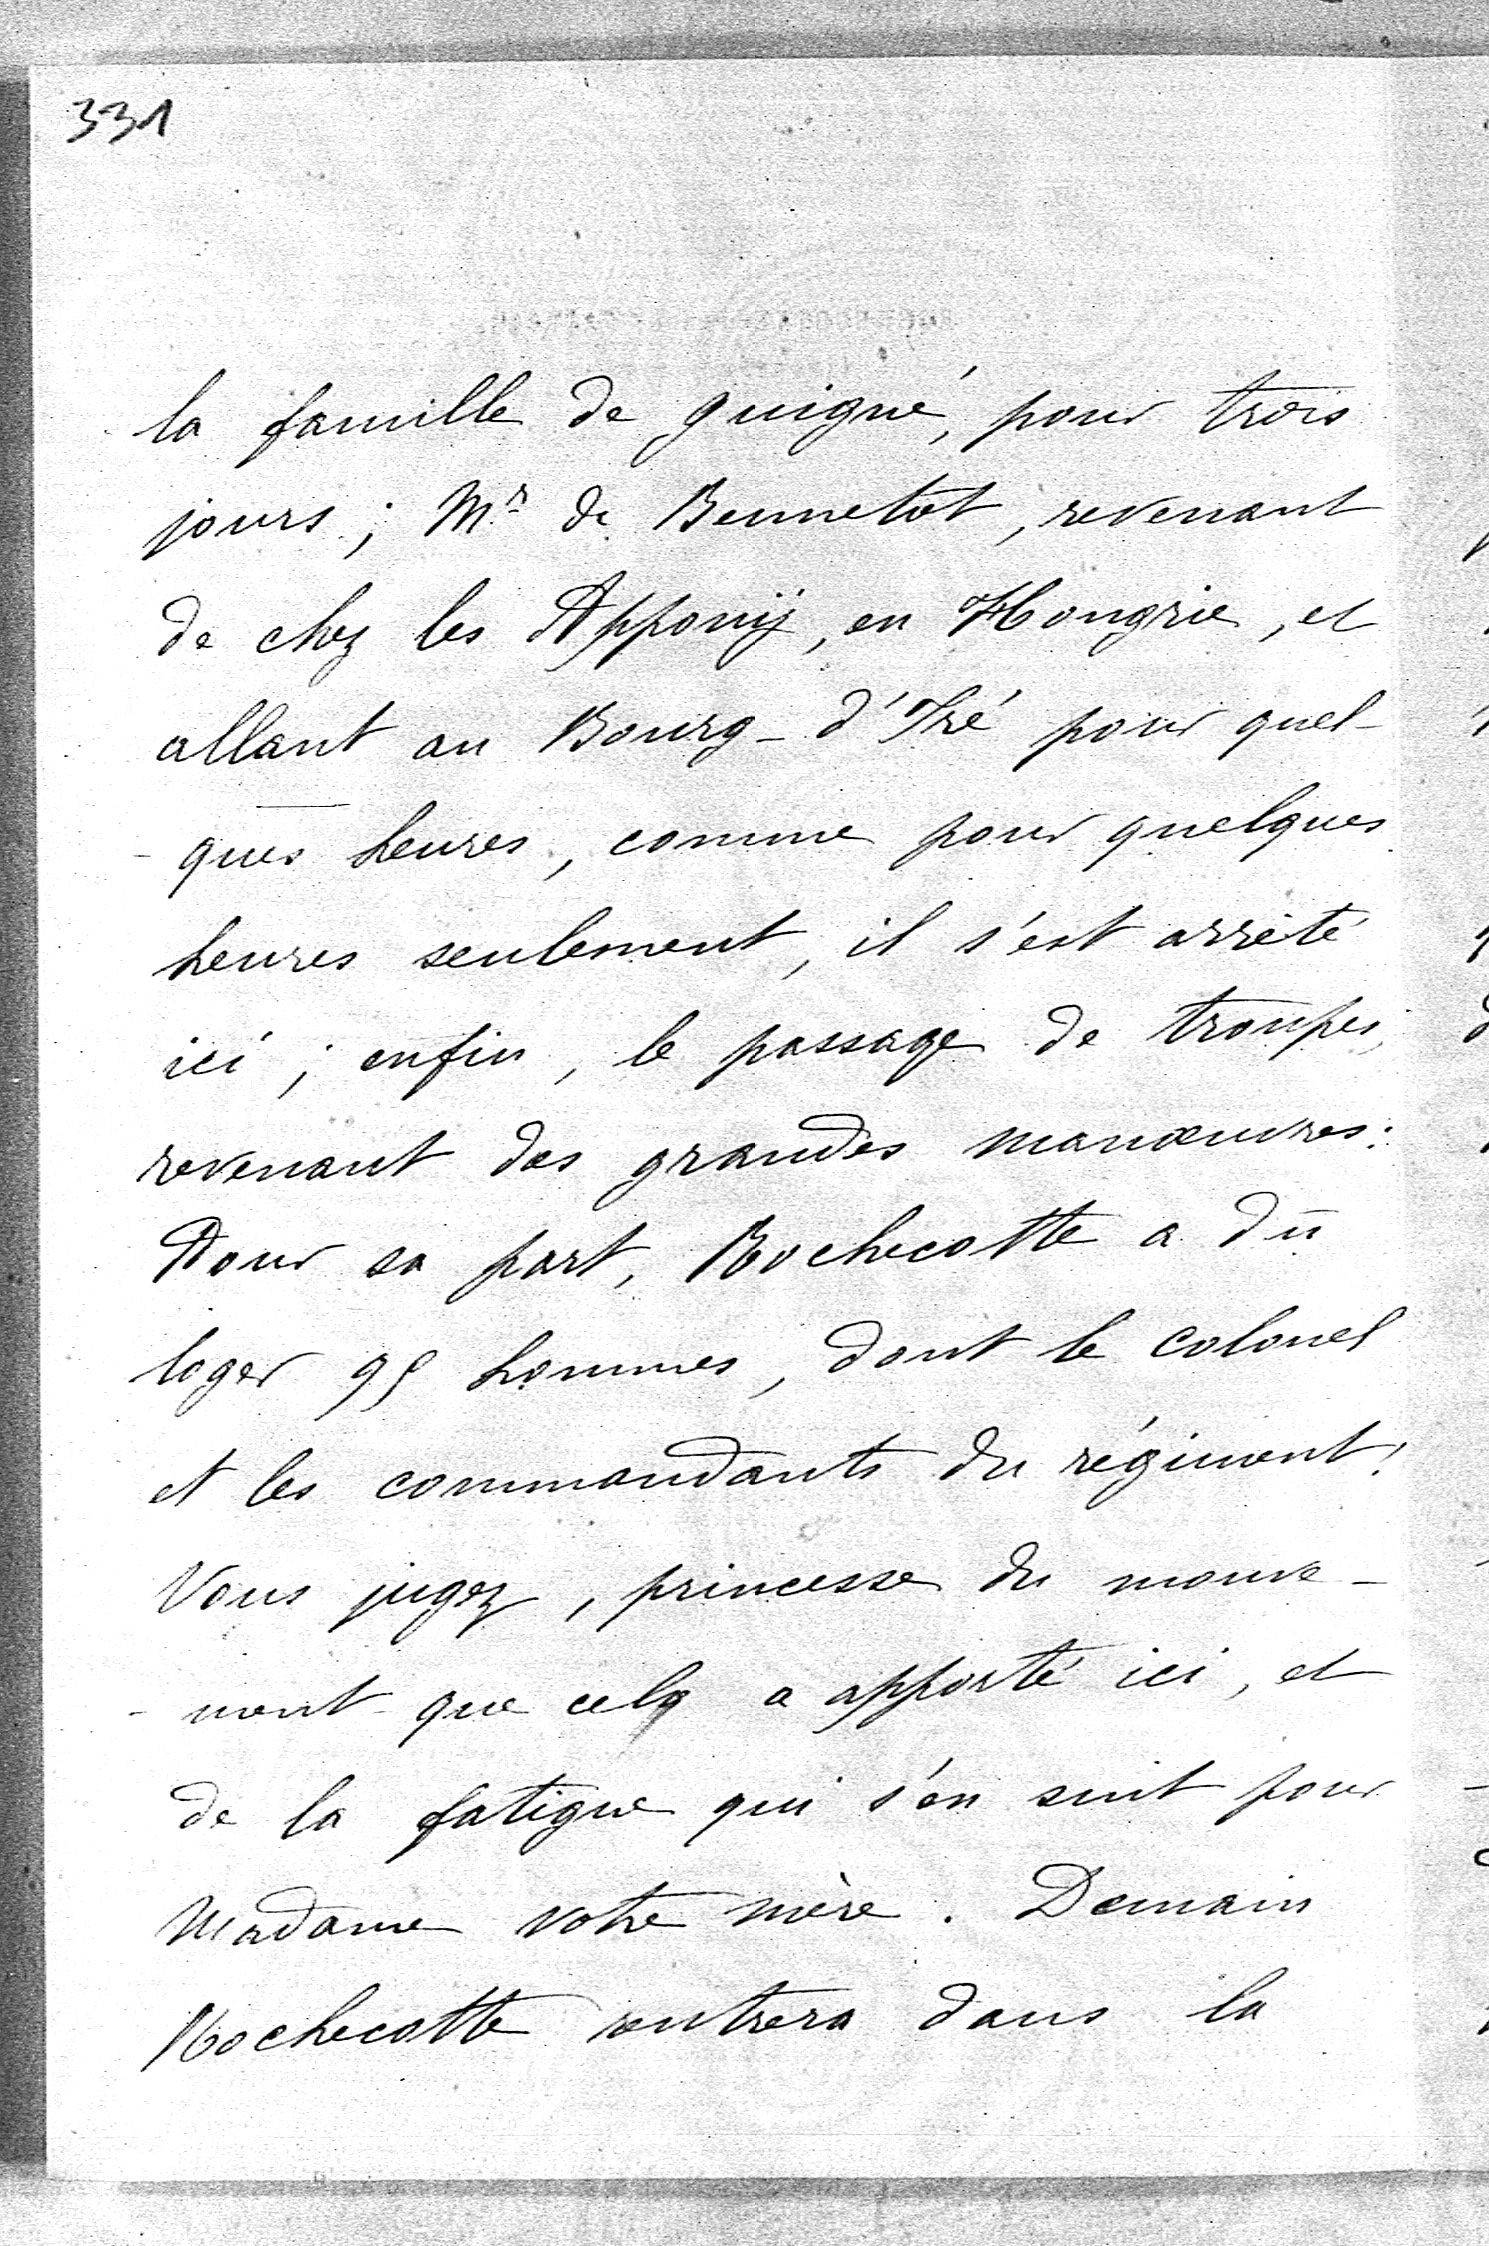 331
la famille de guigné, pour trois
jours ; Mr de Bennetot, revenant
de chez les Apponÿ, en Hongrie, et
allant au Bourg-d'Iré pour quel-
-ques heures, comme pour quelques
heures seulement, il s'est arrêté
ici ; enfin, le passage de troupes,
revenant des grandes manœuvres :
Pour sa part, Rochecotte a dû
loger 95 hommes, dont le colonel
et les commandants du régiment !
Vous jugez, princesse du mouve-
-ment que cela a apporté ici, et
de la fatigue qui s'en suit pour
Madame votre mère. Demain
Rochecotte rentrera dans la